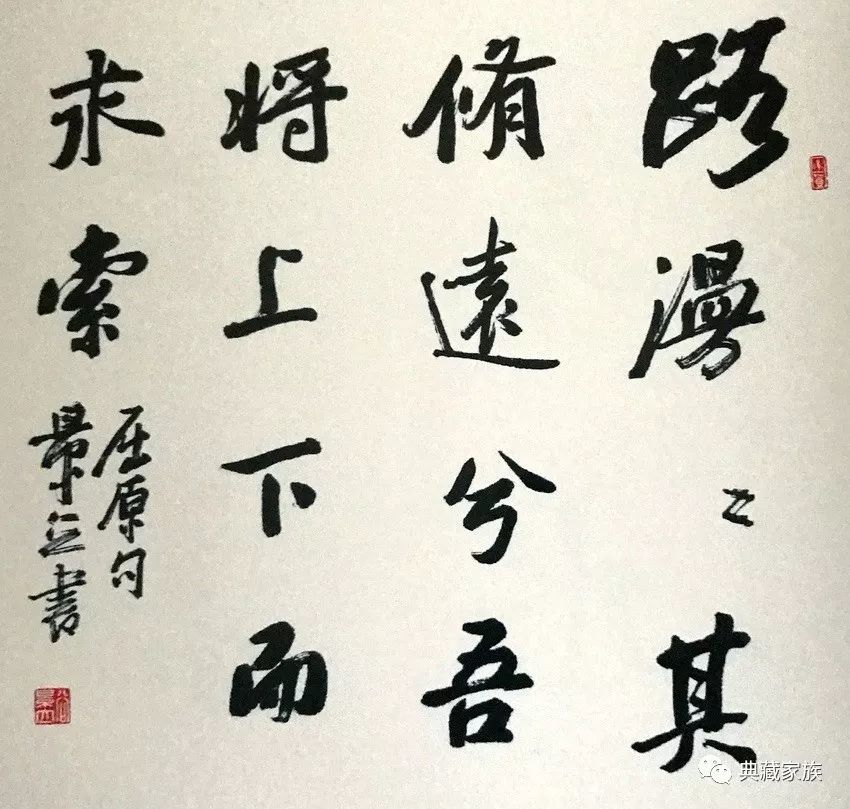 路漫〻其
脩遠兮吾
将上下而
求索
屈原句
景立書
典藏家族